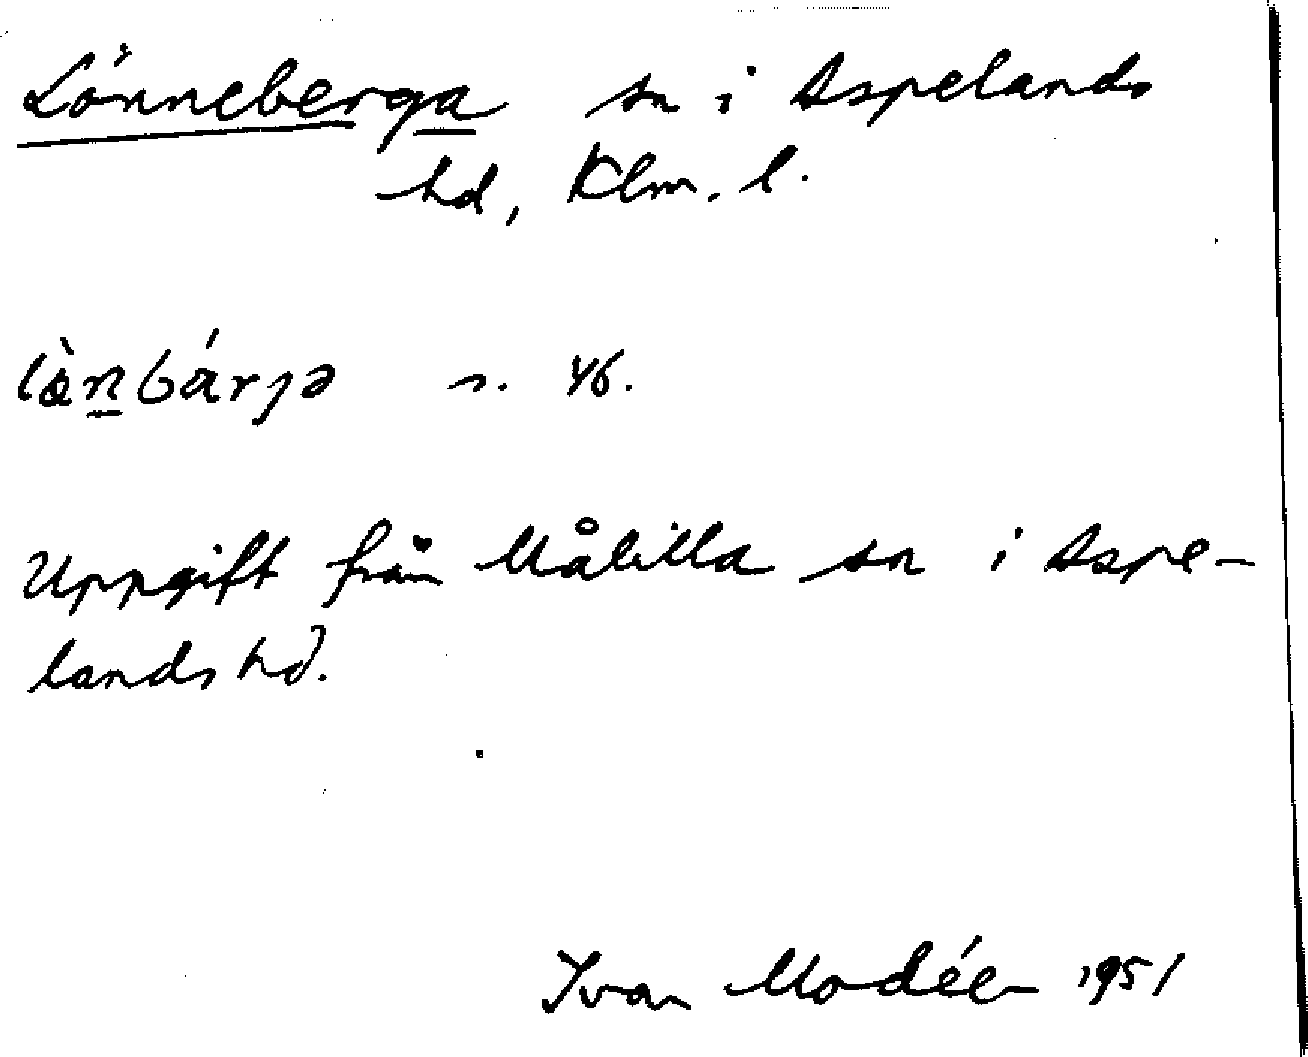 Lönneberga sn i Aspelands
hd, Klm. l.
lǿ̀nbárjə s. 46.
Uppgift från Målilla sn i Aspe-
lands hd.
Ivar Modéer 1951